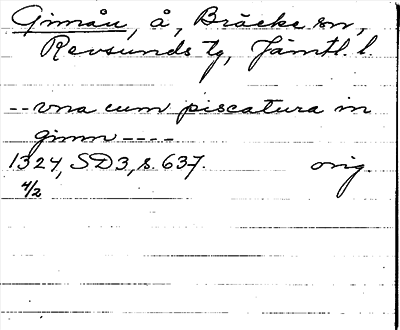 Gimån, å, Bräcke sn,
Revsunds tg, Jämtl. l.
-- vna cum piscatura in
gimn ----
1324, SD3, s. 637. orig.
4/2